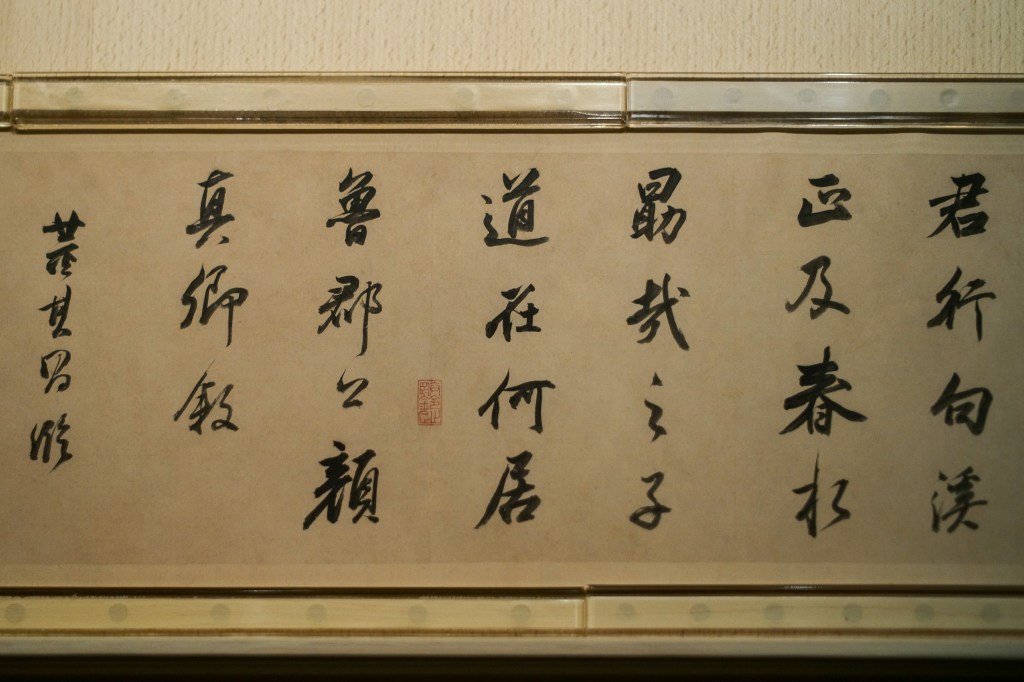 君行句溪
正及春水
勗哉之子
道在何居
魯郡公顏
真卿敘
董其昌臨